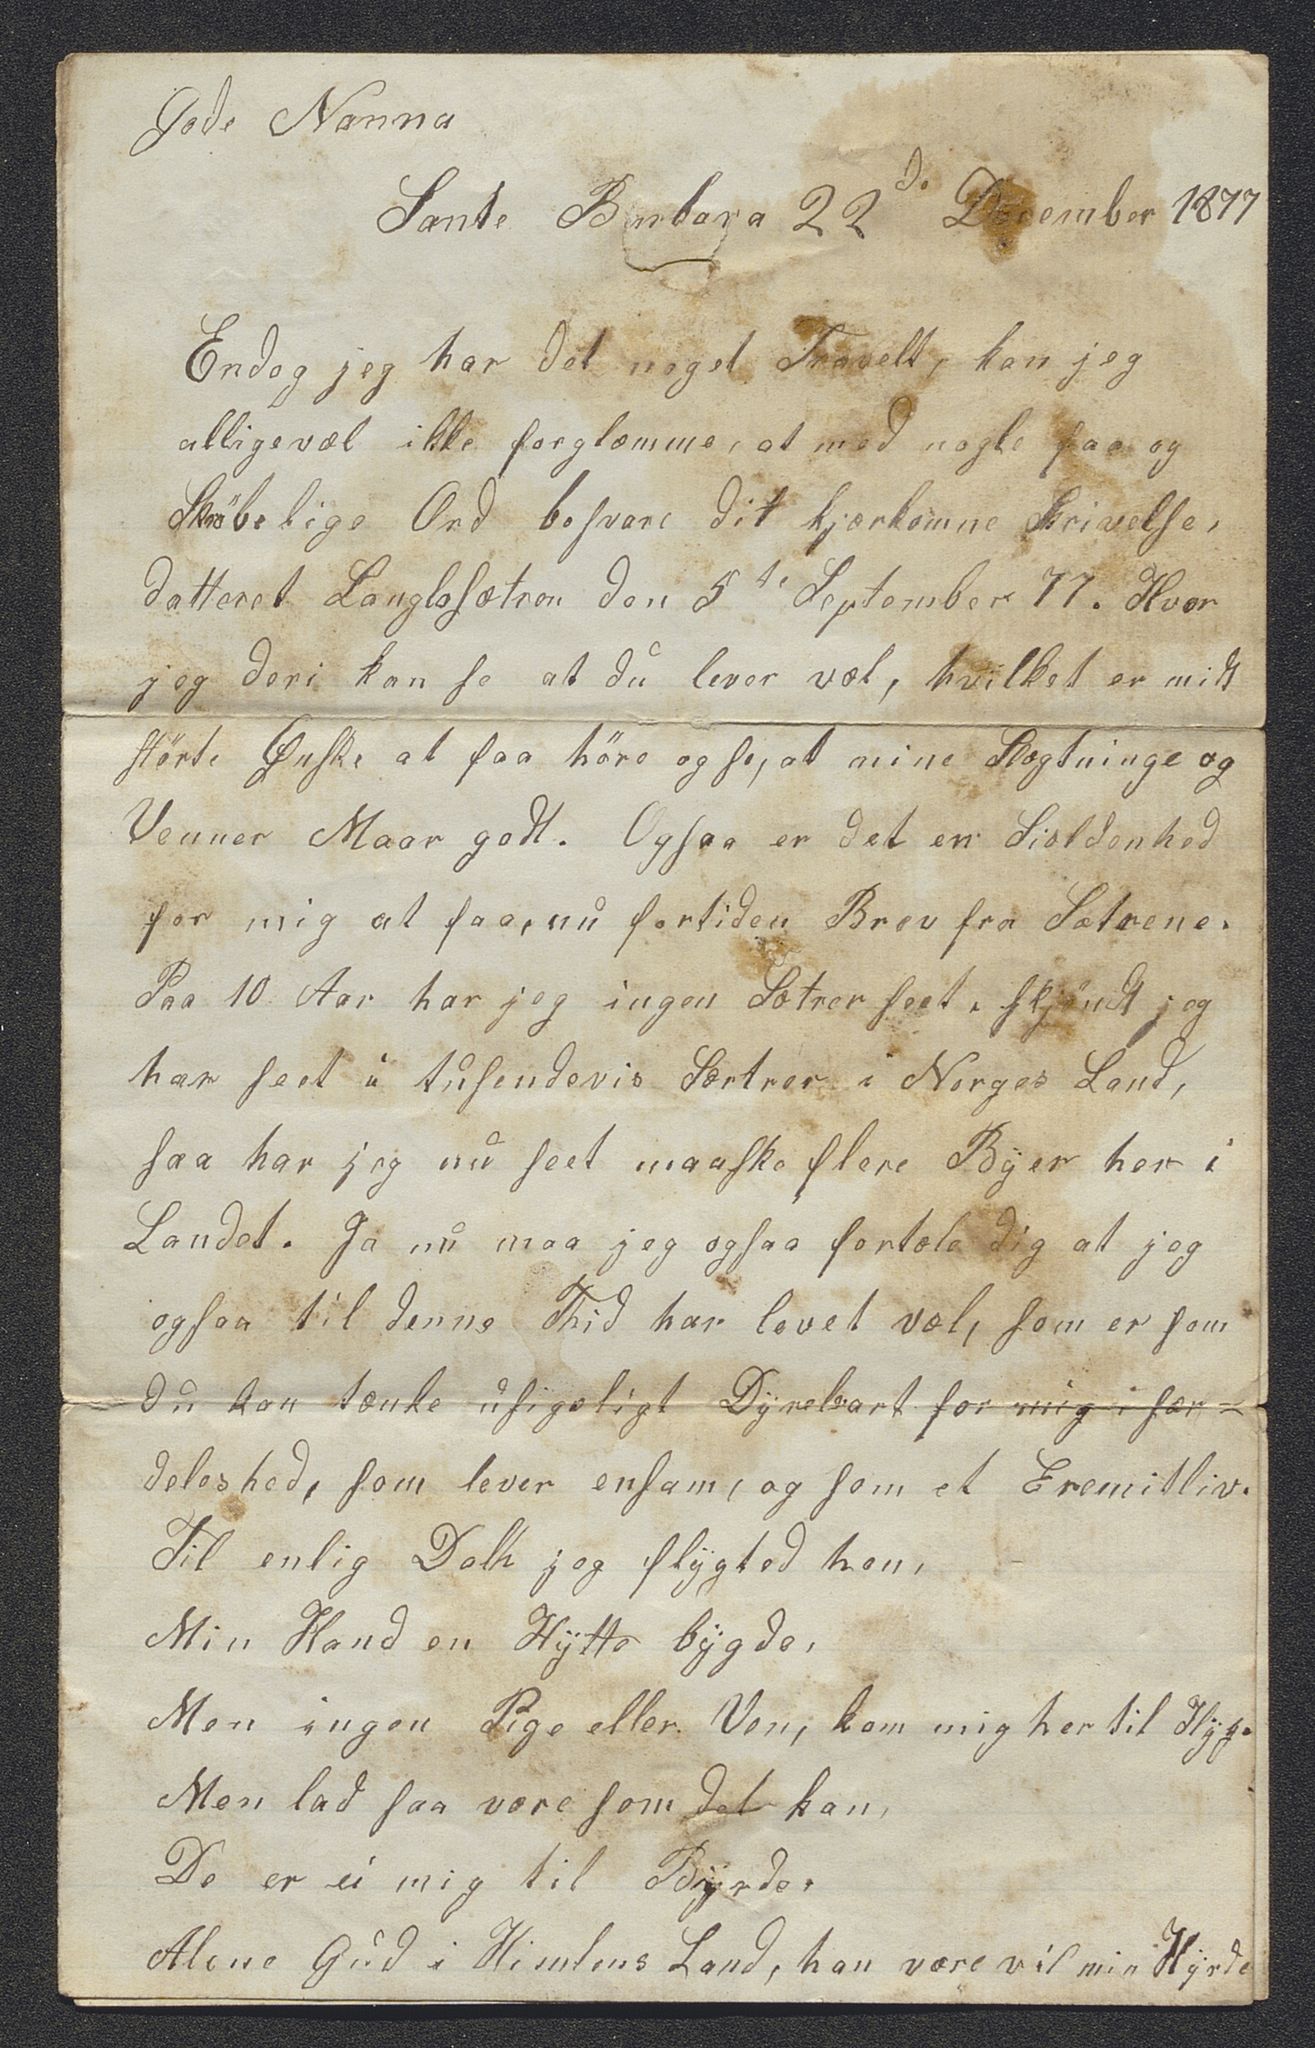 Gode Nanna
Sante Barbara 22de December 1877
Endog jeg har det noget Travelt, kan jeg
alligevæl ikke forglæmme, at med nogle faa og
Skröbelige Ord besvare dit kjærkomne Skrivelse,
datteret Langlesætren den 5te September 77. Hvor
jeg deri kan se at du lever væl, hvilket er midt
störte Ønske at faa höre og se, at mine Slægtninge og
Venner Maar godt. Ogsaa er det en Siældenhed
for mig at faa, nu fortiden Brev fra Sætrene.
Paa 10 Aar har jeg ingen Sætrer seet. skjöndt jeg
har seet i tusendevis Særtrer i Norges Land,
saa har jeg nu seet maaske flere Byer her i
Landet. Ja nu maa jeg ogsaa fortæle dig at jeg
ogsaa til denne Thid har levet væl, som er som
du kan tænke usigeligt Dyrebart for mig i sær-
deleshed, som lever ensam, og som et Eremitliv.
Til enlig Dalh jeg flygted hen,
Min Hand en Hytte bygde,
Men ingen Pige eller Ven, kom mig her til Hyg.
Men lad saa være som det kan,
De er ei mig til Byrde.
Alene Gud i Himlens Land, han være vil min Hyrde